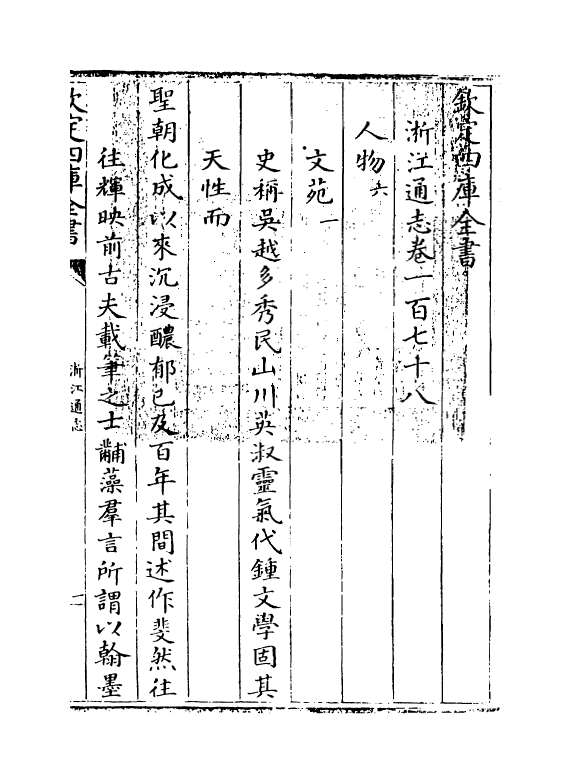 欽定四庫全書
浙江通志卷一百七十八
人物六
文苑一
史稱吳越多秀民山川英淑靈氣代鍾文學固其
天性而
聖朝化成以來沉浸醲郁已及百年其間述作斐然往
往輝映前古夫載筆之士黼藻羣言所謂以翰墨
欽定四庫全書
浙江通志
一